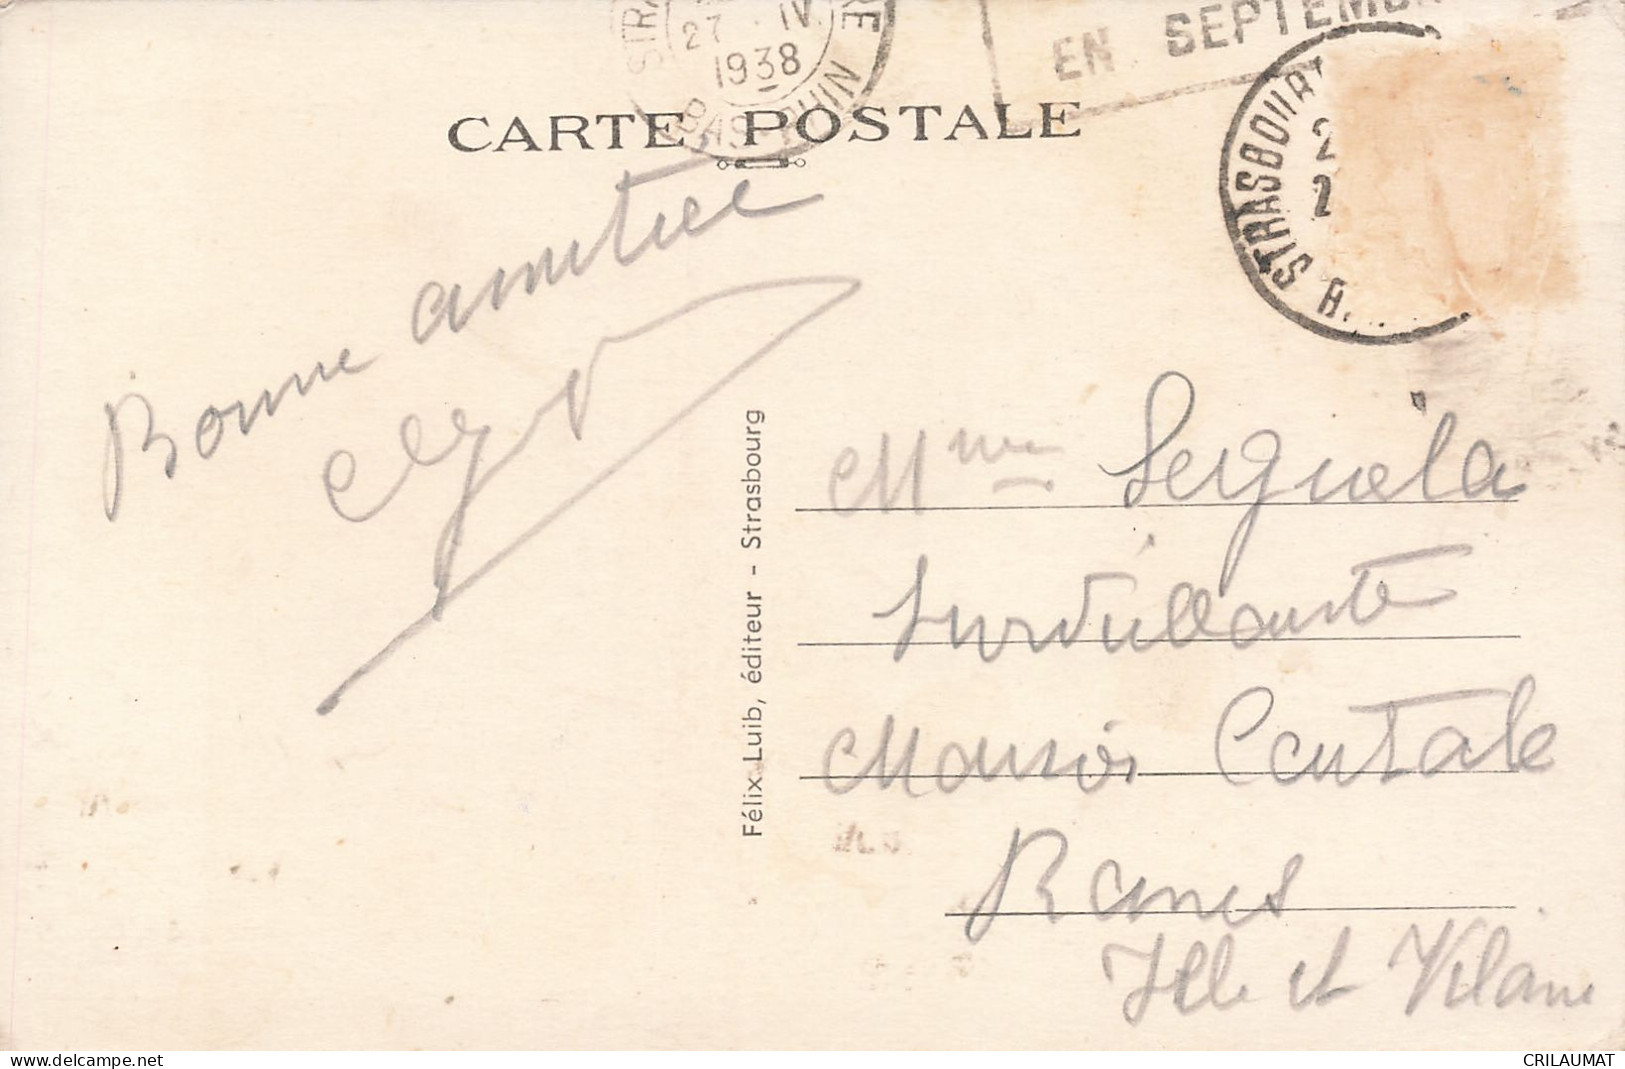 STRA 27 IV 1938 RE BAS-RHIN
EN SEPTEMB
STRASBOURG
CARTE POSTALE
Bonne amitiee
Félix Luib, éditeur - Strasbourg
Mme Seguela
Surveillante
Maison Centrale
Rennes
Ille et Vilaine
delcampe.net
CRILAUMAT